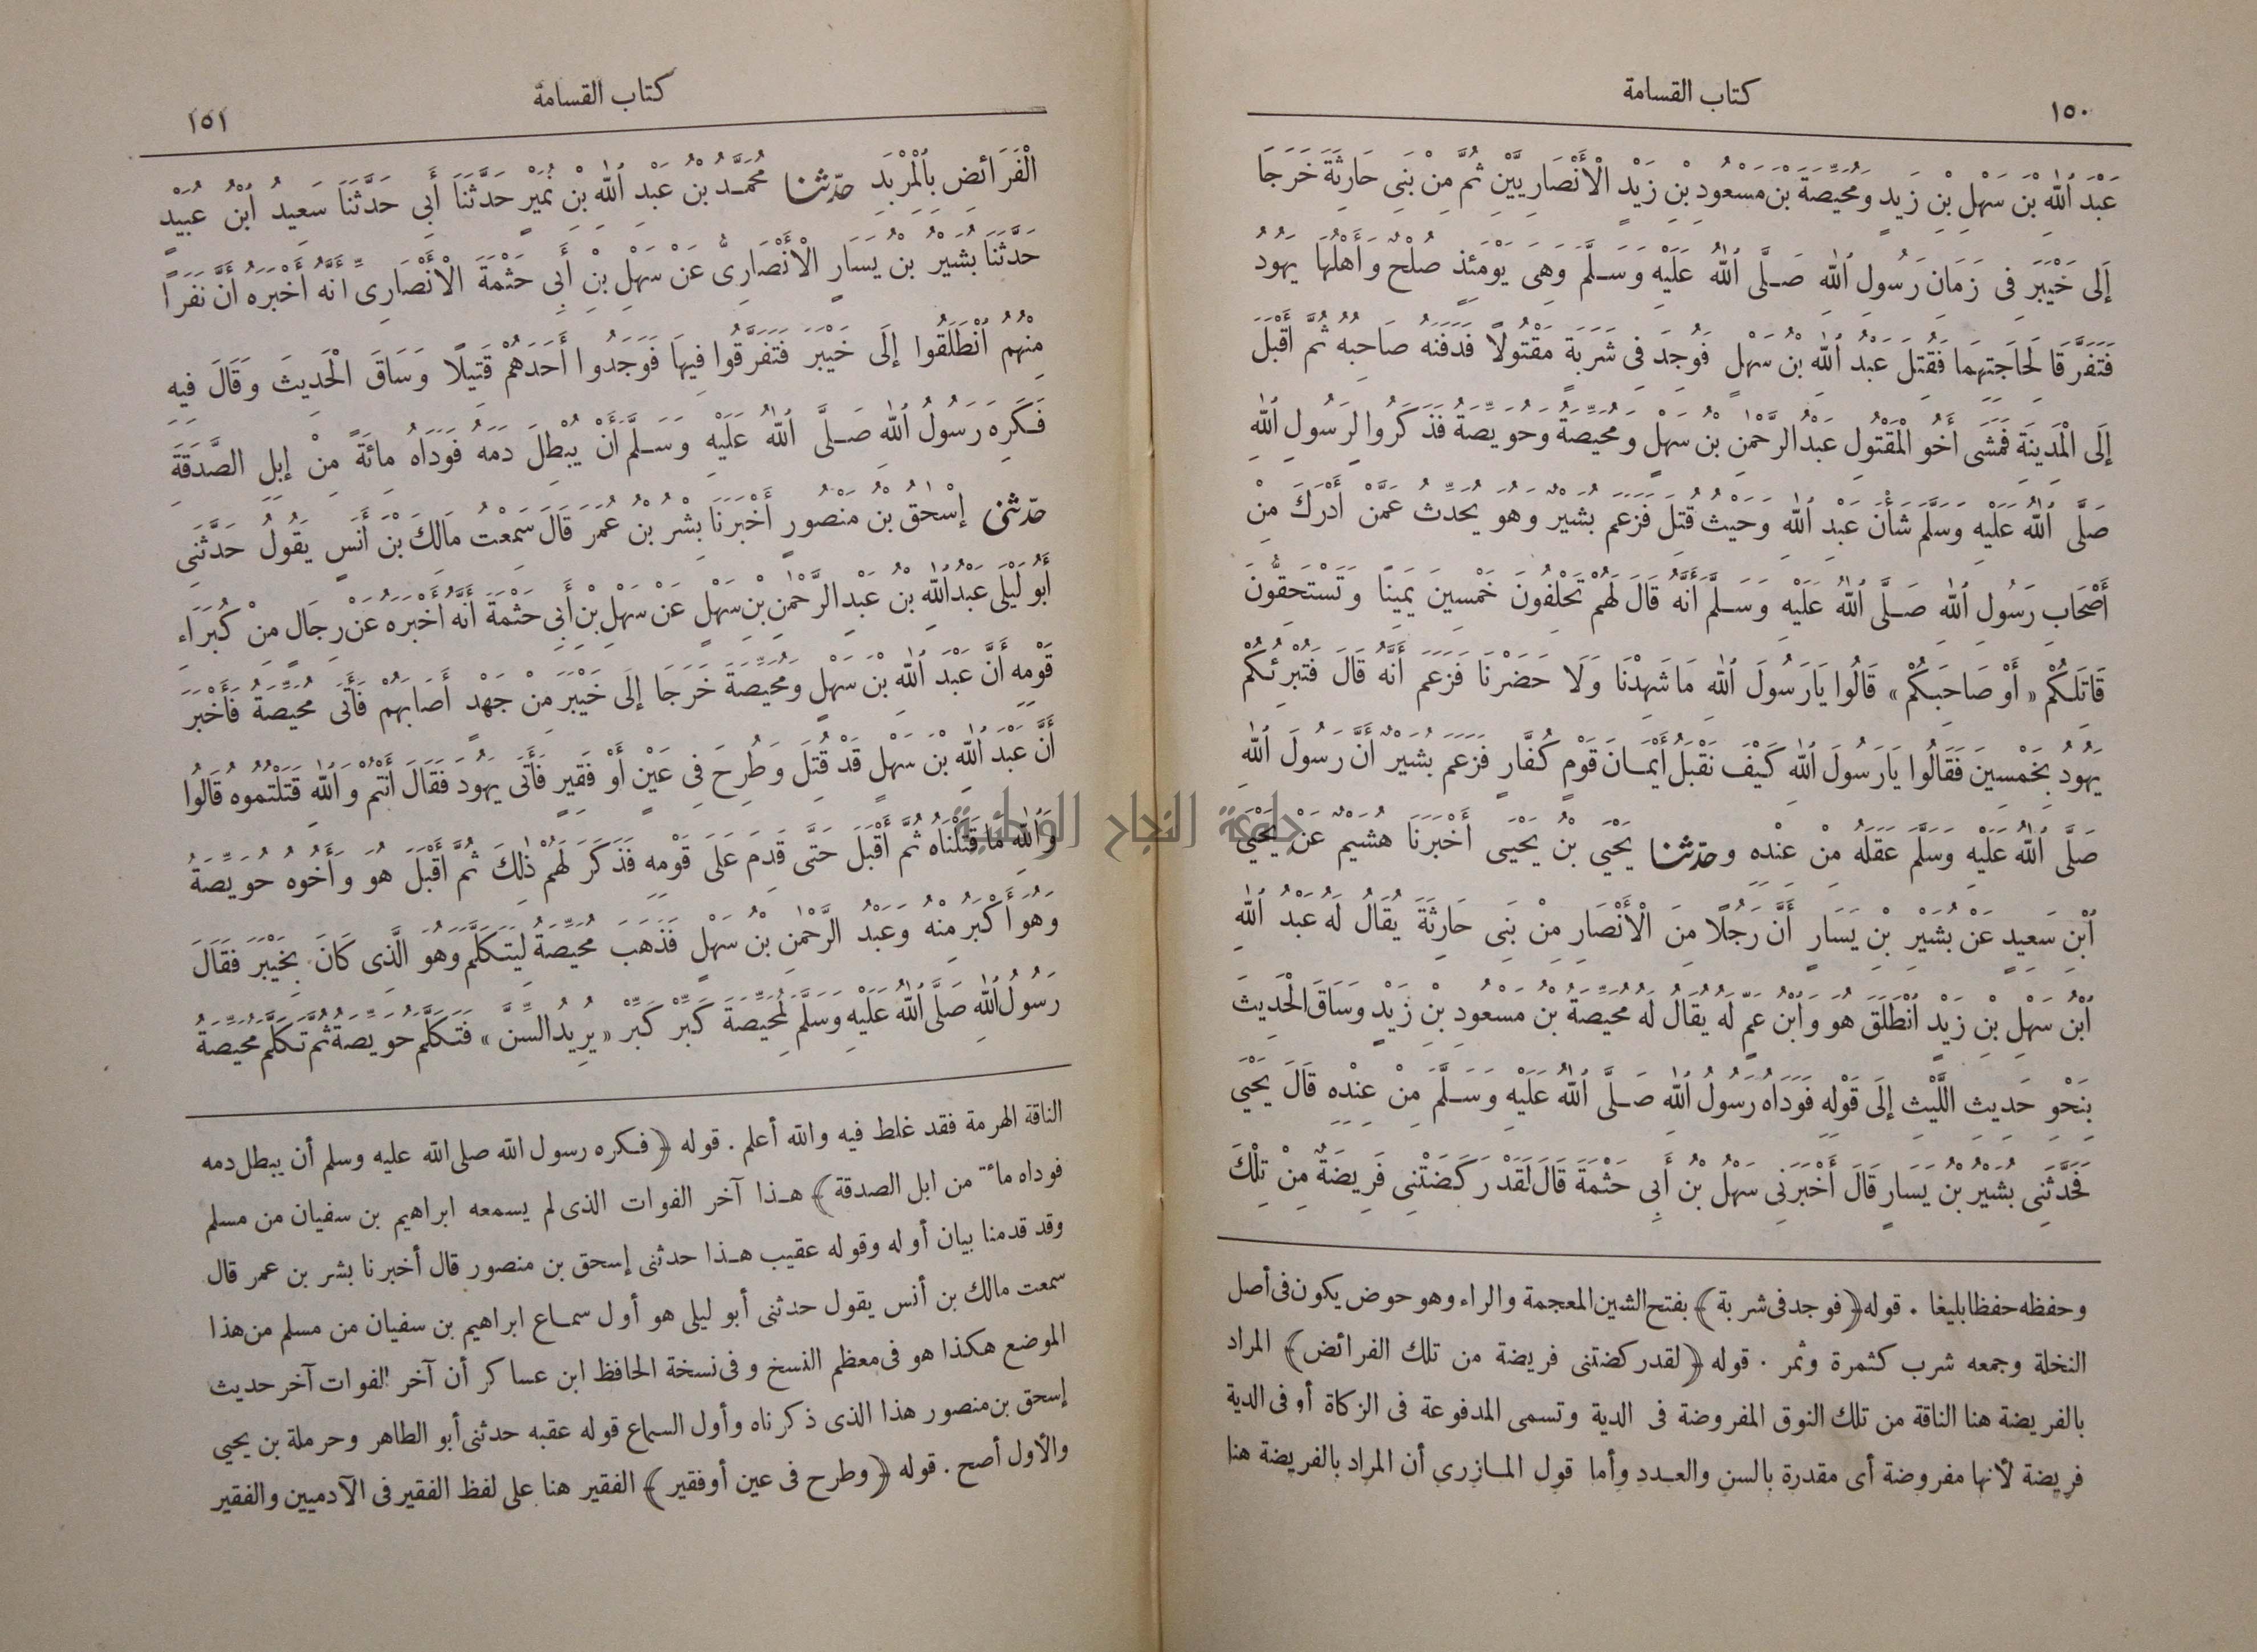 ١٥٠
كتاب القسامة
عَبْدَ ٱللهِ بْنَ سَهْلِ بْنِ زَيدٍ وَمُحَيِّصَةَ بْنَ مَسْعُودِ بْنِ زَيْدٍ الْأَنْصَارِيَّيْنِ ثُمَّ مِنْ بَنِى حَارِثَةَ خَرَجَا
إلَى خَيْبَرَ فِى زَمَانِ رَسُولِ ٱللهِ صَلَّى ٱللهُ عَلَيْهِ وَسَلَّمَ وَهِىَ يَوْمَئِذٍ صُلْحٌ وَأَهْلُهَا يَهُودُ
فَتَفَرَّقَا لِحَاجَتِهِمَا فَقُتِلَ عَبْدُ ٱللهِ بْنُ سَهْلٍ فَوُجِدَ فِى شَرَبَةٍ مَقْتُولًا فَدَفَنَهُ صَاحِبُهُ ثُمَّ أَقْبَلَ
إلَى الْمَدِينَةِ فَمَشَى أَخُو الْمَقْتُولِ عَبْدُ الرَّحْمٰنِ بْنُ سَهْلٍ وَمُحَيِّصَةُ وَحُوَيِّصَةُ فَذَكَرُوا لِرَسُولِ ٱللهِ
صَلَّى ٱللهُ عَلَيْهِ وَسَلَّمَ شَأْنَ عَبْدِ ٱللهِ وَحَيْثُ قُتِلَ فَزَعَمَ بُشَيْرٌ وَهُوَ يُحَدِّثُ عَمَّنْ أَدْرَكَ مِنْ
أَصْحَابِ رَسُولِ ٱللهِ صَلَّى ٱللهُ عَلَيْهِ وَسَلَّمَ أَنَّهُ قَالَ لَهُمْ تَحْلِفُونَ خَمْسِينَ يَمِينًا وَتَسْتَحِقُّونَ
قَاتِلَكُمْ « أَوْ صَاحِبَكُمْ » قَالُوا يَا رَسُولَ ٱللهِ مَا شَهِدْنَا وَلَا حَضَرْنَا فَزَعَمَ أَنَّهُ قَالَ فَتُبْرِئُكُمْ
يَهُودُ بِخَمْسِينَ فَقَالُوا يَا رَسُولَ ٱللهِ كَيْفَ نَقْبَلُ أَيْمَانَ قَوْمٍ كُفَّارٍ فَزَعَمَ بُشَيْرٌ أَنَّ رَسُولَ ٱللهِ
صَلَّى ٱللهُ عَلَيْهِ وَسَلَّمَ عَقَلَهُ مِنْ عِنْدِهِ وحَدّثنا يَحْيَى بْنُ يَحْيَى أَخْبَرَنَا هُشَيْمٌ عَنْ يَحْيَى
ٱبْنِ سَعِيدٍ عَنْ بُشَيْرِ بْنِ يَسَارٍ أَنَّ رَجُلًا مِنَ الْأَنْصَارِ مِنْ بَنِى حَارِثَةَ يُقَالُ لَهُ عَبْدُ ٱللهِ
ٱبْنُ سَهْلِ بْنِ زَيْدٍ ٱنْطَلَقَ هُوَ وَٱبْنُ عَمٍّ لَهُ يُقَالُ لَهُ مُحَيِّصَةُ بْنُ مَسْعُودِ بْنِ زَيْدٍ وَسَاقَ الْحَدِيثَ
بِنَحْوِ حَدِيثِ اللَّيْثِ إلَى قَوْلِهِ فَوَدَاهُ رَسُولُ ٱللهِ صَلَّى ٱللهُ عَلَيْهِ وَسَلَّمَ مِنْ عِنْدِهِ قَالَ يَحْيَى
فَحَدَّثَنِى بُشَيْرُ بْنُ يَسَارٍ قَالَ أَخْبَرَنِى سَهْلُ بْنُ أَبِى حَثْمَةَ قَالَ لَقَدْ رَكَضَتْنِى فَرِيضَةٌ مِنْ تِلْكَ
وحفظه حفظا بليغا . قوله ﴿فوجد فى شربة﴾ بفتح الشين المعجمة والراء وهو حوض يكون فى أصل
النخلة وجمعه شرب كثمرة وثمر . قوله ﴿لقد ركضتنى فريضة من تلك الفرائض﴾ المراد
بالفريضة هنا الناقة من تلك النوق المفروضة فى الدية وتسمى المدفوعة فى الزكاة أو فى الدية
فريضة لأنها مفروضة أى مقدرة بالسن والعدد وأما قول المازري أن المراد بالفريضة هنا
كتاب القسامة
١٥١
الْفَرَائِضِ بِالْمِرْبَدِ حَدّثنا مُحَمَّدُ بْنُ عَبْدِ ٱللهِ بْنِ نُمَيْرٍ حَدَّثَنَا أَبِى حَدَّثَنَا سَعِيدُ ٱبْنُ عُبَيْدٍ
حَدَّثَنَا بُشَيْرُ بْنُ يَسَارٍ الْأَنْصَارِىُّ عَنْ سَهْلِ بْنِ أَبِى حَثْمَةَ الْأَنْصَارِىِّ أَنَّهُ أَخْبَرَهُ أَنَّ نَفَرًا
مِنْهُمُ ٱنْطَلَقُوا إلَى خَيْبَرَ فَتَفَرَّقُوا فِيهَا فَوَجَدُوا أَحَدَهُمْ قَتِيلًا وَسَاقَ الْحَدِيثَ وَقَالَ فِيهِ
فَكَرِهَ رَسُولُ ٱللهِ صَلَّى ٱللهُ عَلَيْهِ وَسَلَّمَ أَنْ يُبْطِلَ دَمَهُ فَوَدَاهُ مِائَةً مِنْ إبِلِ الصَّدَقَةِ
حَدّثنى إسْحٰقُ بْنُ مَنْصُورٍ أَخْبَرَنَا بِشْرُ بْنُ عُمَرَ قَالَ سَمِعْتُ مَالِكَ بْنَ أَنَسٍ يَقُولُ حَدَّثَنِى
أَبُو لَيْلَى عَبْدُ ٱللهِ بْنُ عَبْدِ الرَّحْمٰنِ بْنِ سَهْلٍ عَنْ سَهْلِ بْنِ أَبِى حَثْمَةَ أَنَّهُ أَخْبَرَهُ عَنْ رِجَالٍ مِنْ كُبَرَاءِ
قَوْمِهِ أَنَّ عَبْدَ ٱللهِ بْنَ سَهْلٍ وَمُحَيِّصَةَ خَرَجَا إلَى خَيْبَرَ مِنْ جَهْدٍ أَصَابَهُمْ فَأَتَى مُحَيِّصَةُ فَأَخْبَرَ
أَنَّ عَبْدَ ٱللهِ بْنَ سَهْلٍ قَدْ قُتِلَ وَطُرِحَ فِى عَيْنٍ أَوْ فَقِيرٍ فَأَتَى يَهُودَ فَقَالَ أَنْتُمْ وَٱللهِ قَتَلْتُمُوهُ قَالُوا
وَٱللهِ مَا قَتَلْنَاهُ ثُمَّ أَقْبَلَ حَتَّى قَدِمَ عَلَى قَوْمِهِ فَذَكَرَ لَهُمْ ذٰلِكَ ثُمَّ أَقْبَلَ هُوَ وَأَخُوهُ حُوَيِّصَةُ
وَهُوَ أَكْبَرُ مِنْهُ وَعَبْدُ الرَّحْمٰنِ بْنُ سَهْلٍ فَذَهَبَ مُحَيِّصَةُ لِيَتَكَلَّمَ وَهُوَ الَّذِى كَانَ بِخَيْبَرَ فَقَالَ
رَسُولُ ٱللهِ صَلَّى ٱللهُ عَلَيْهِ وَسَلَّمَ لِمُحَيِّصَةَ كَبِّرْ كَبِّرْ « يُرِيدُ السِّنَّ » فَتَكَلَّمَ حُوَيِّصَةُ ثُمَّ تَكَلَّمَ مُحَيِّصَةُ
الناقة الهرمة فقد غلط فيه والله أعلم . قوله ﴿فكره رسول الله صلى الله عليه وسلم أن يبطل دمه
فوداه مائة من ابل الصدقة﴾ هذا آخر الفوات الذى لم يسمعه ابراهيم بن سفيان من مسلم
وقد قدمنا بيان أوله وقوله عقيب هذا حدثنى إسحق بن منصور قال أخبرنا بشر بن عمر قال
سمعت مالك بن أنس يقول حدثنى أبو ليلى هو أول سماع ابراهيم بن سفيان من مسلم من هذا
الموضع هكذا هو فى معظم النسخ وفى نسخة الحافظ ابن عساكر أن آخر الفوات آخر حديث
إسحق بن منصور هذا الذى ذكرناه وأول السماع قوله عقبه حدثنى أبو الطاهر وحرملة بن يحيي
والأول أصح . قوله ﴿وطرح فى عين أو فقير﴾ الفقير هنا على لفظ الفقير فى الآدميين والفقير
جامعة النجاح الوطنية